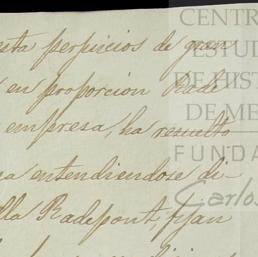 esta perjuicios de gran
en proporcion
empresa, ha resuelto
entendiendose di-
lla Radepont, fijan
CENTR
ESTUD
DE HIST
DE ME
FUNDA
Carlos